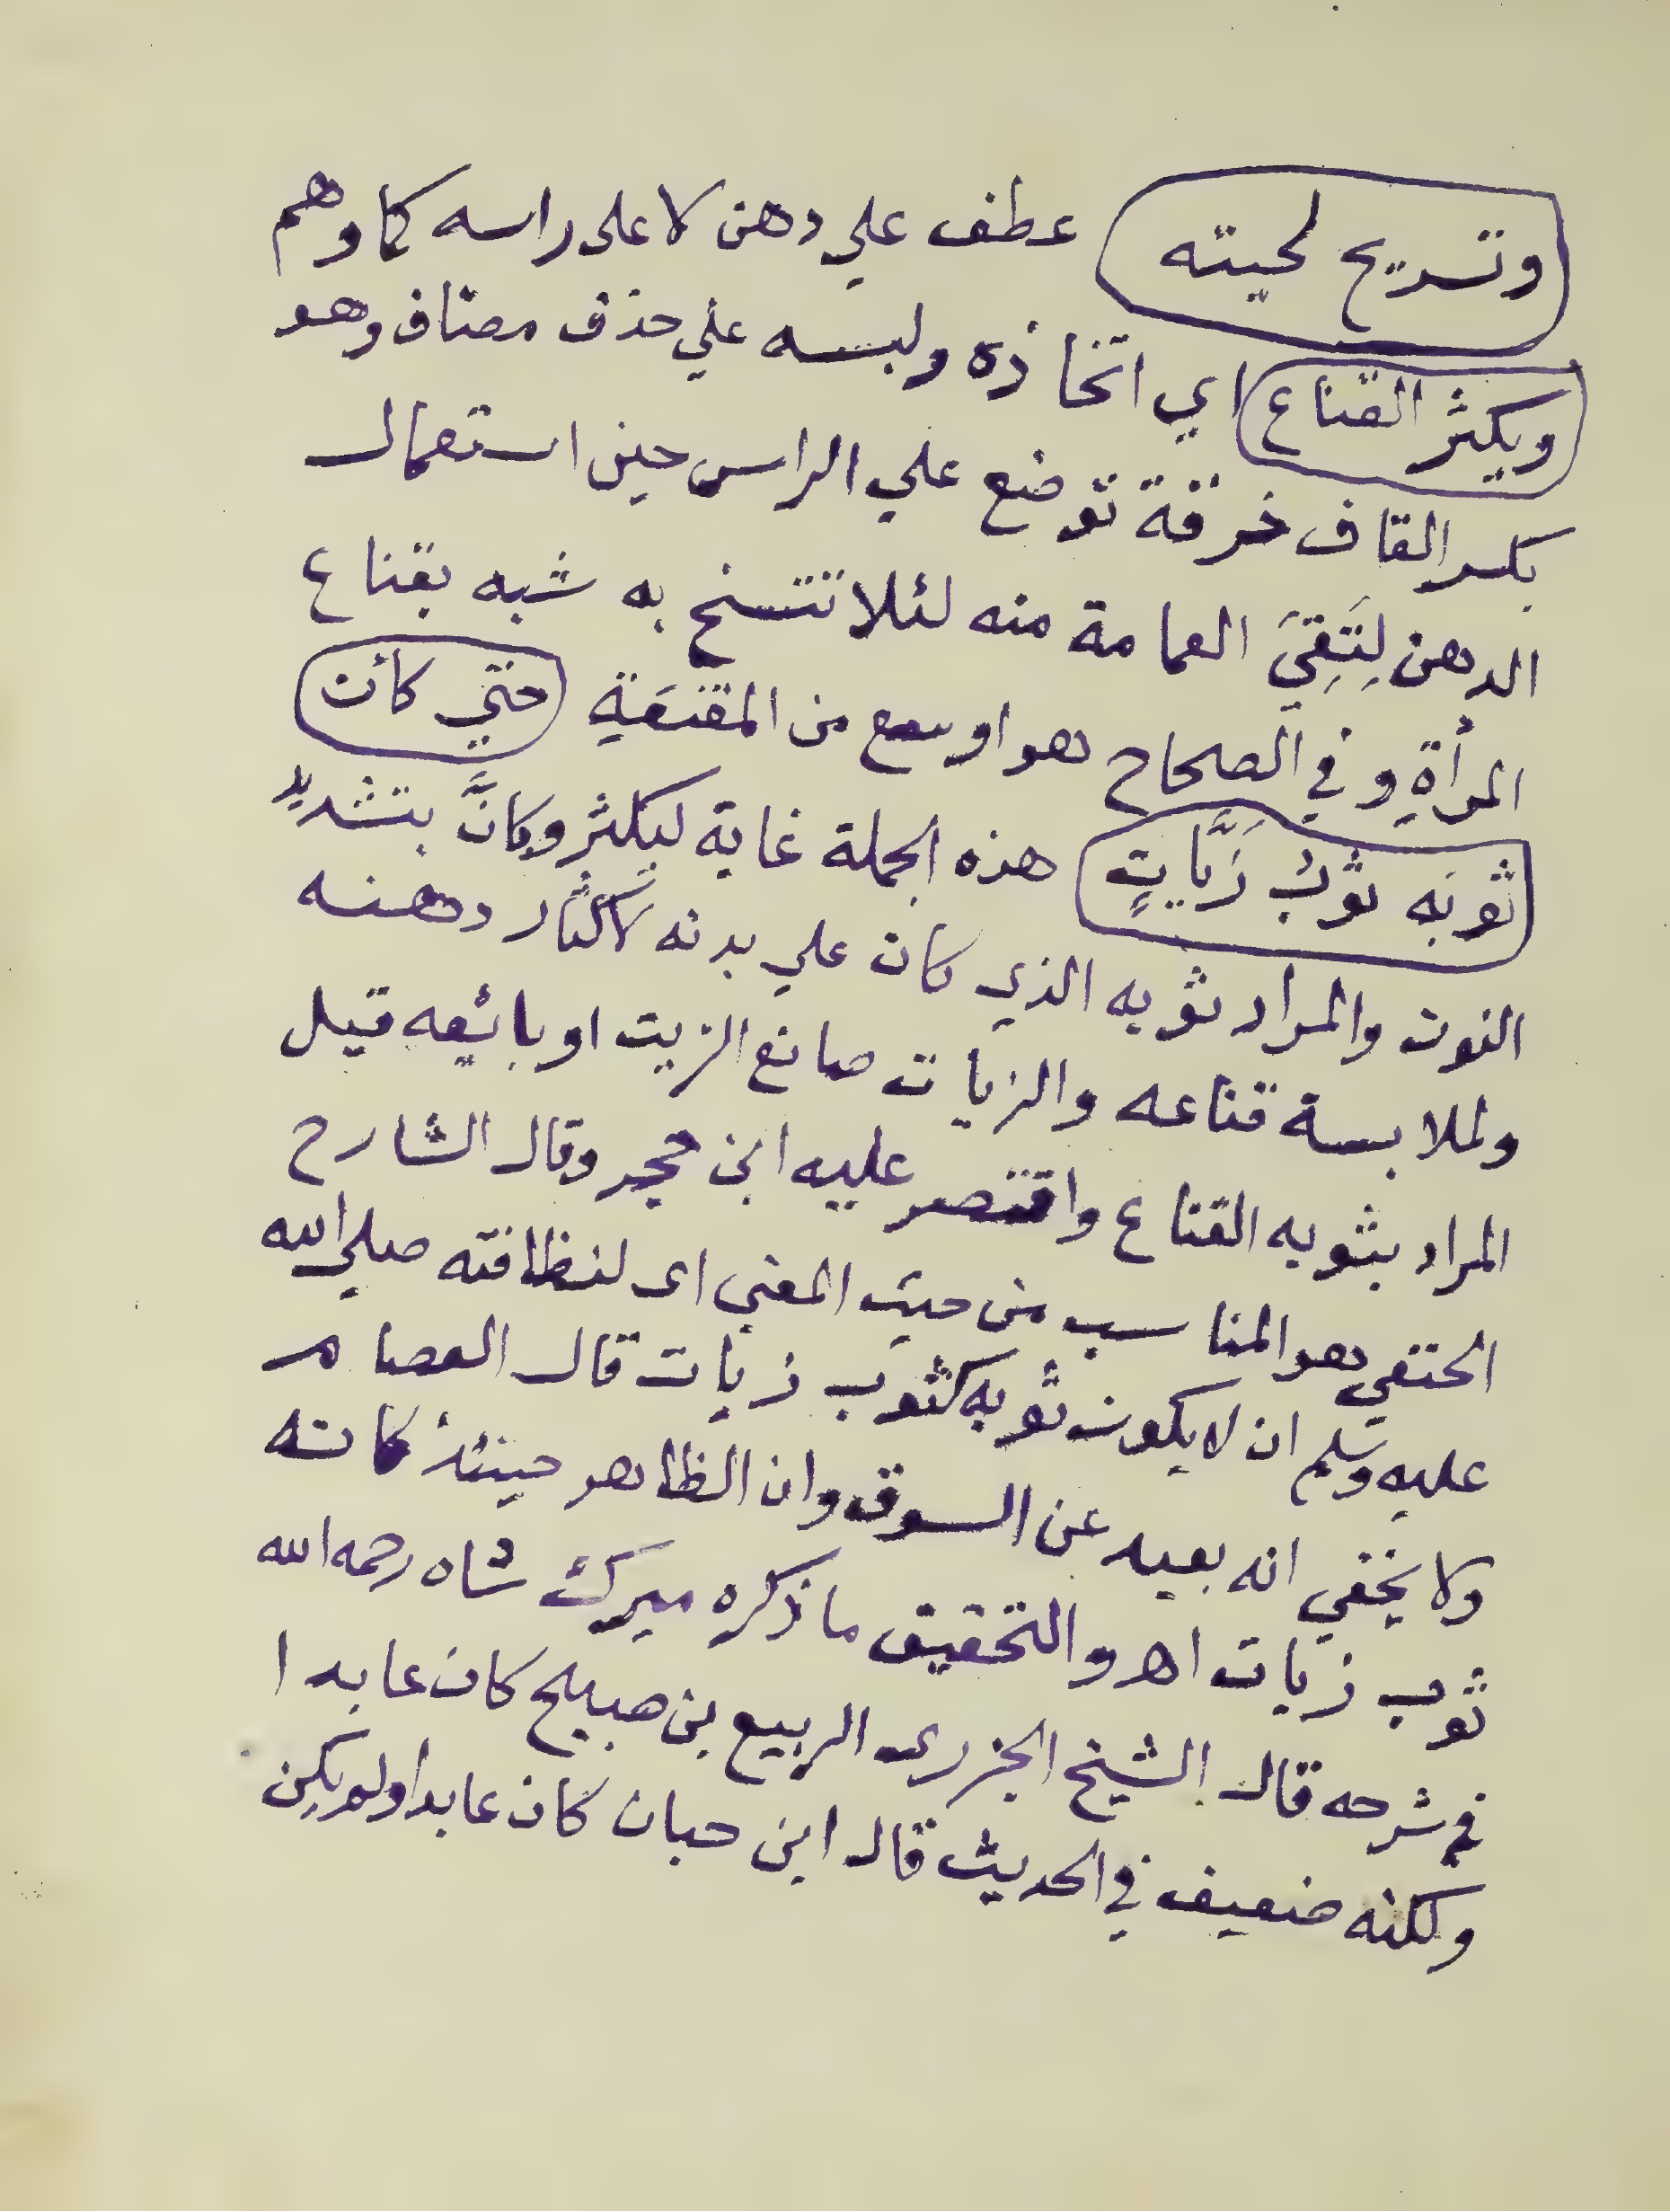 وتسريح لحيته عطف علي دهن لا على راسه كما وهم
ويكثر القناع اي اتخاذه ولبسه علي حذف مضاف وهو
بكسر القاف خرقة توضع علي الراس حين استعمال
الدهن لِتَقِيَ العمامة منه لئلا تتسخ به شبه بقناع
المرأةِ وفي الصحاح هو اوسع من المقنَعَةِ حتي كأن
ثوبَه ثوبُ زَيَّاتٍ هذه الجملة غاية ليكثر وكانَّ بتشديد
النون والمراد ثوبه الذي كان علي بدنه لاكثار دهنه
ولملابسة قناعه والزيات صانع الزيت او بائعه قيل
المراد بثوبه القناع واقتصر عليه ابن حجر وقال الشارح
الحنفي هو المناسب من حيث المعني اى لنظافته صلي الله
عليه وسلم ان لا يكون ثوبه كثوب زيات قال العصام
ولا يخفي انه بعيد عن السوق وان الظاهر حينئذ كانه
ثوب زيات اهـ والتحقيق ما ذكره ميرك شاه رحمه الله
في شرحه قال الشيخ الجزرى الربيع بن صبيح كان عابدا
ولكنه ضعيف في الحديث قال ابن حبان كان عابدا ولم يكن